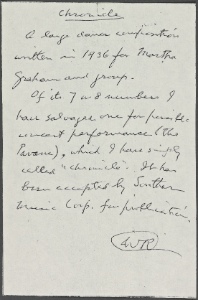 Chronicle
A large dance composition
written in 1936 for Martha
Graham and group.
Of its 7 or 8 numbers I
have salvaged one for possible
concert performance (the
Pavane), which I have simply
called "Chronicle". It has
been accepted by Southern
Music Corp. for publication.
WR